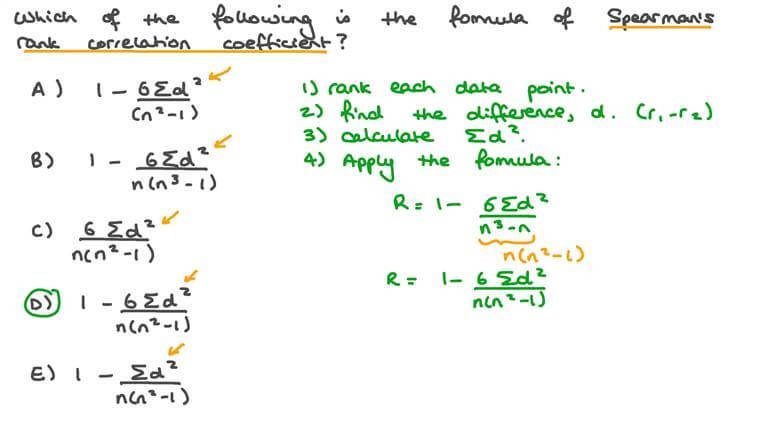 Which of the following is the formula of Spearman's
rank correlation coefficient?
A) 1 - 6Σd²/(n²-1)
B) 1 - 6Σd²/n(n³-1)
C) 6Σd²/n(n²-1)
D) 1 - 6Σd²/n(n²-1)
E) 1 - Σd²/n(n²-1)
1) rank each data point.
2) find the difference, d. (r₁-r₂)
3) calculate Σd².
4) Apply the formula:
R = 1 - 6Σd²/n³-n
n(n²-1)
R = 1 - 6Σd²/n(n²-1)